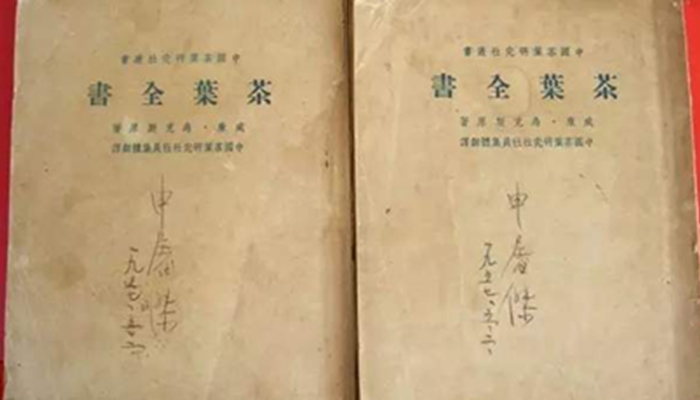 中國茶葉研究社叢書
茶葉全書
威廉·烏克斯原著
中國茶葉研究社社員集體翻譯
申屠傑
中國茶葉研究社叢書
茶葉全書
威廉·烏克斯原著
中國茶葉研究社社員集體翻譯
申屠傑